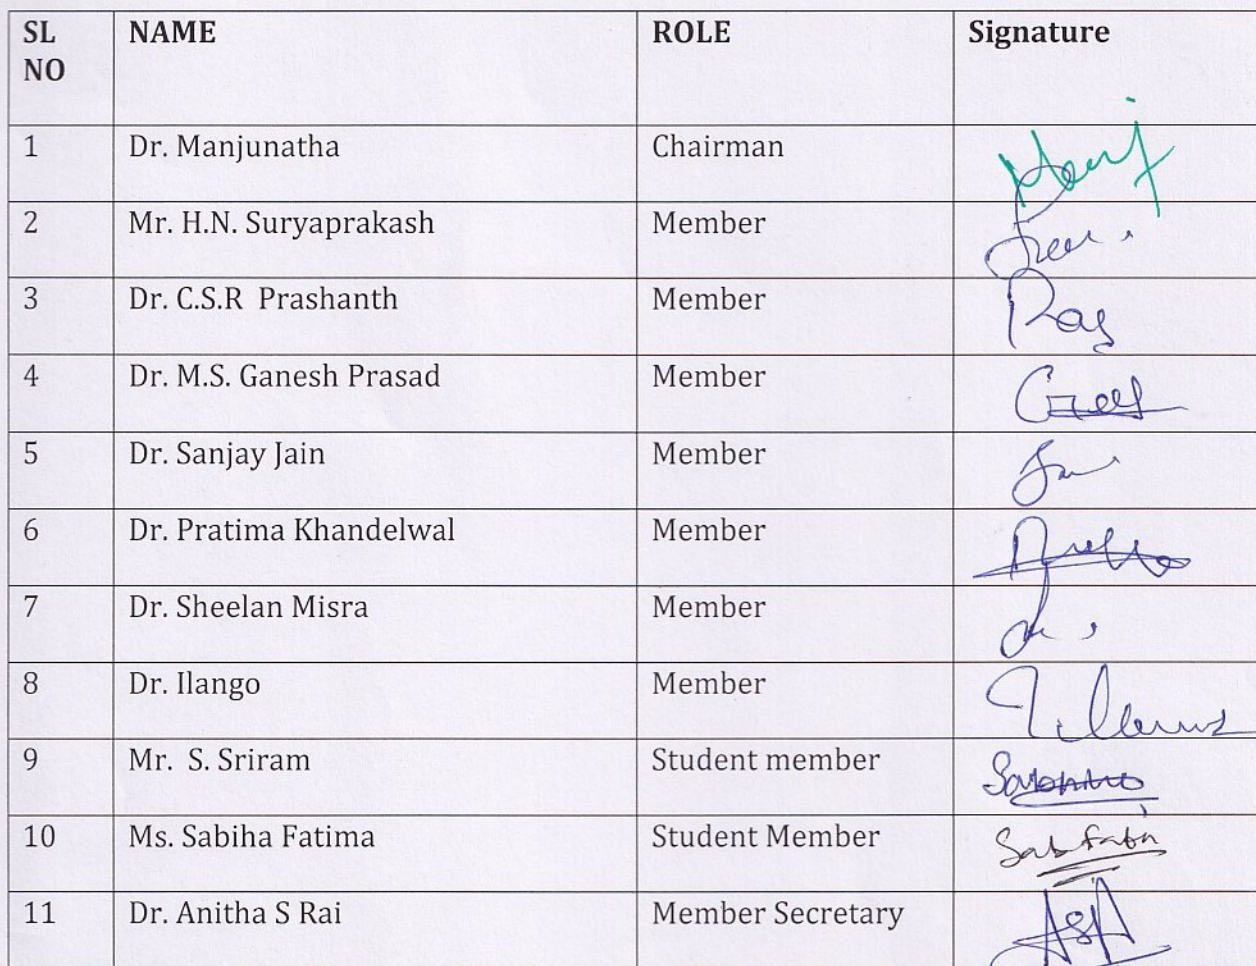 SL NO NAME ROLE Signature
1 Dr. Manjunatha Chairman
2 Mr. H.N. Suryaprakash Member
3 Dr. C.S.R Prashanth Member
4 Dr. M.S. Ganesh Prasad Member
5 Dr. Sanjay Jain Member
6 Dr. Pratima Khandelwal Member
7 Dr. Sheelan Misra Member
8 Dr. Ilango Member
9 Mr. S. Sriram Student member
10 Ms. Sabiha Fatima Student Member
11 Dr. Anitha S Rai Member Secretary